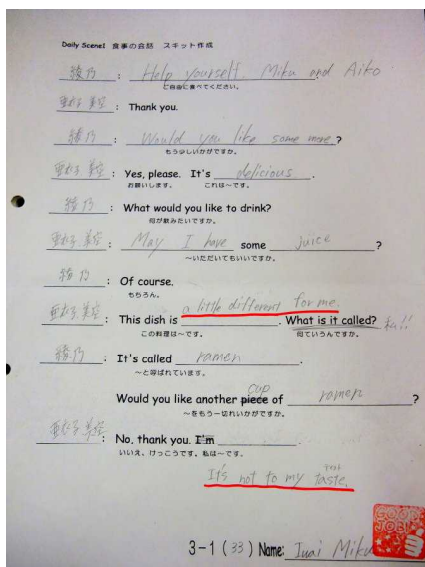 Daily Scene1 食事の会話 スキット作成
綾乃 : Help yourself, Miku and Aiko
ご自由に食べてください。
美空 : Thank you.
綾乃 : Would you like some more ?
もう少しいかがですか。
美空 : Yes, please. It's delicious .
お願いします。 これは~です。
綾乃 : What would you like to drink?
何が飲みたいですか。
美空 : May I have some juice ?
~いただいてもいいですか。
綾乃 : Of course.
もちろん。
a little different for me.
美空 : This dish is . What is it called? 私!!
この料理は~です。 何ていうんですか。
綾乃 : It's called ramen
~と呼ばれています。
cup
Would you like another piece of ramen ?
~をもう一切れいかがですか。
美空 : No, thank you. I'm
いいえ、けっこうです。私は~です。
It's not to my taste.
GOOD JOB!
3-1 (33) Name: Miku